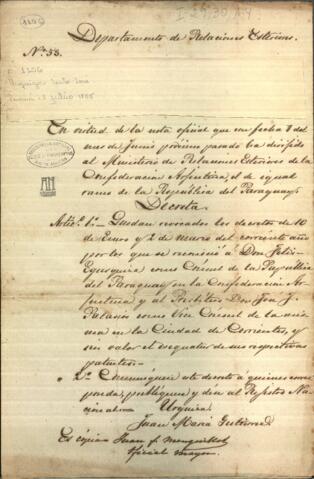 I-29,30,1,4
1206
Departamento de Relaciones Esteriores.
N.º 53.
1206
En virtud de la nota oficial que con fecha 8 del
mes de Junio próximo pasado ha dirijido
al Ministerio de Relaciones Esteriores de la
Confederacion Arjentina, el de igual
ramo de la Republica del Paraguay
Decreta.
Artic.º 1.º Quedan revocados los decretos de 10
de Enero y 2 de Marzo del corriente año
por los que se reconoció á Don Felix
Eguzquiza como Consul de la Republica
del Paraguay en la Confederacion Ar-
jentina y al Don José J.
como Vice Consul de la mis-
ma en la Ciudad de Corrientes, y
sin valor el exequatur de sus respectivas
patentes.
" 2.º Comuníquese este decreto á quienes corres-
ponda, publíquese y dése al Rejistro Na-
cional. Urquiza
Juan Maria Gutierrez
Es copia Juan
Oficial mayor